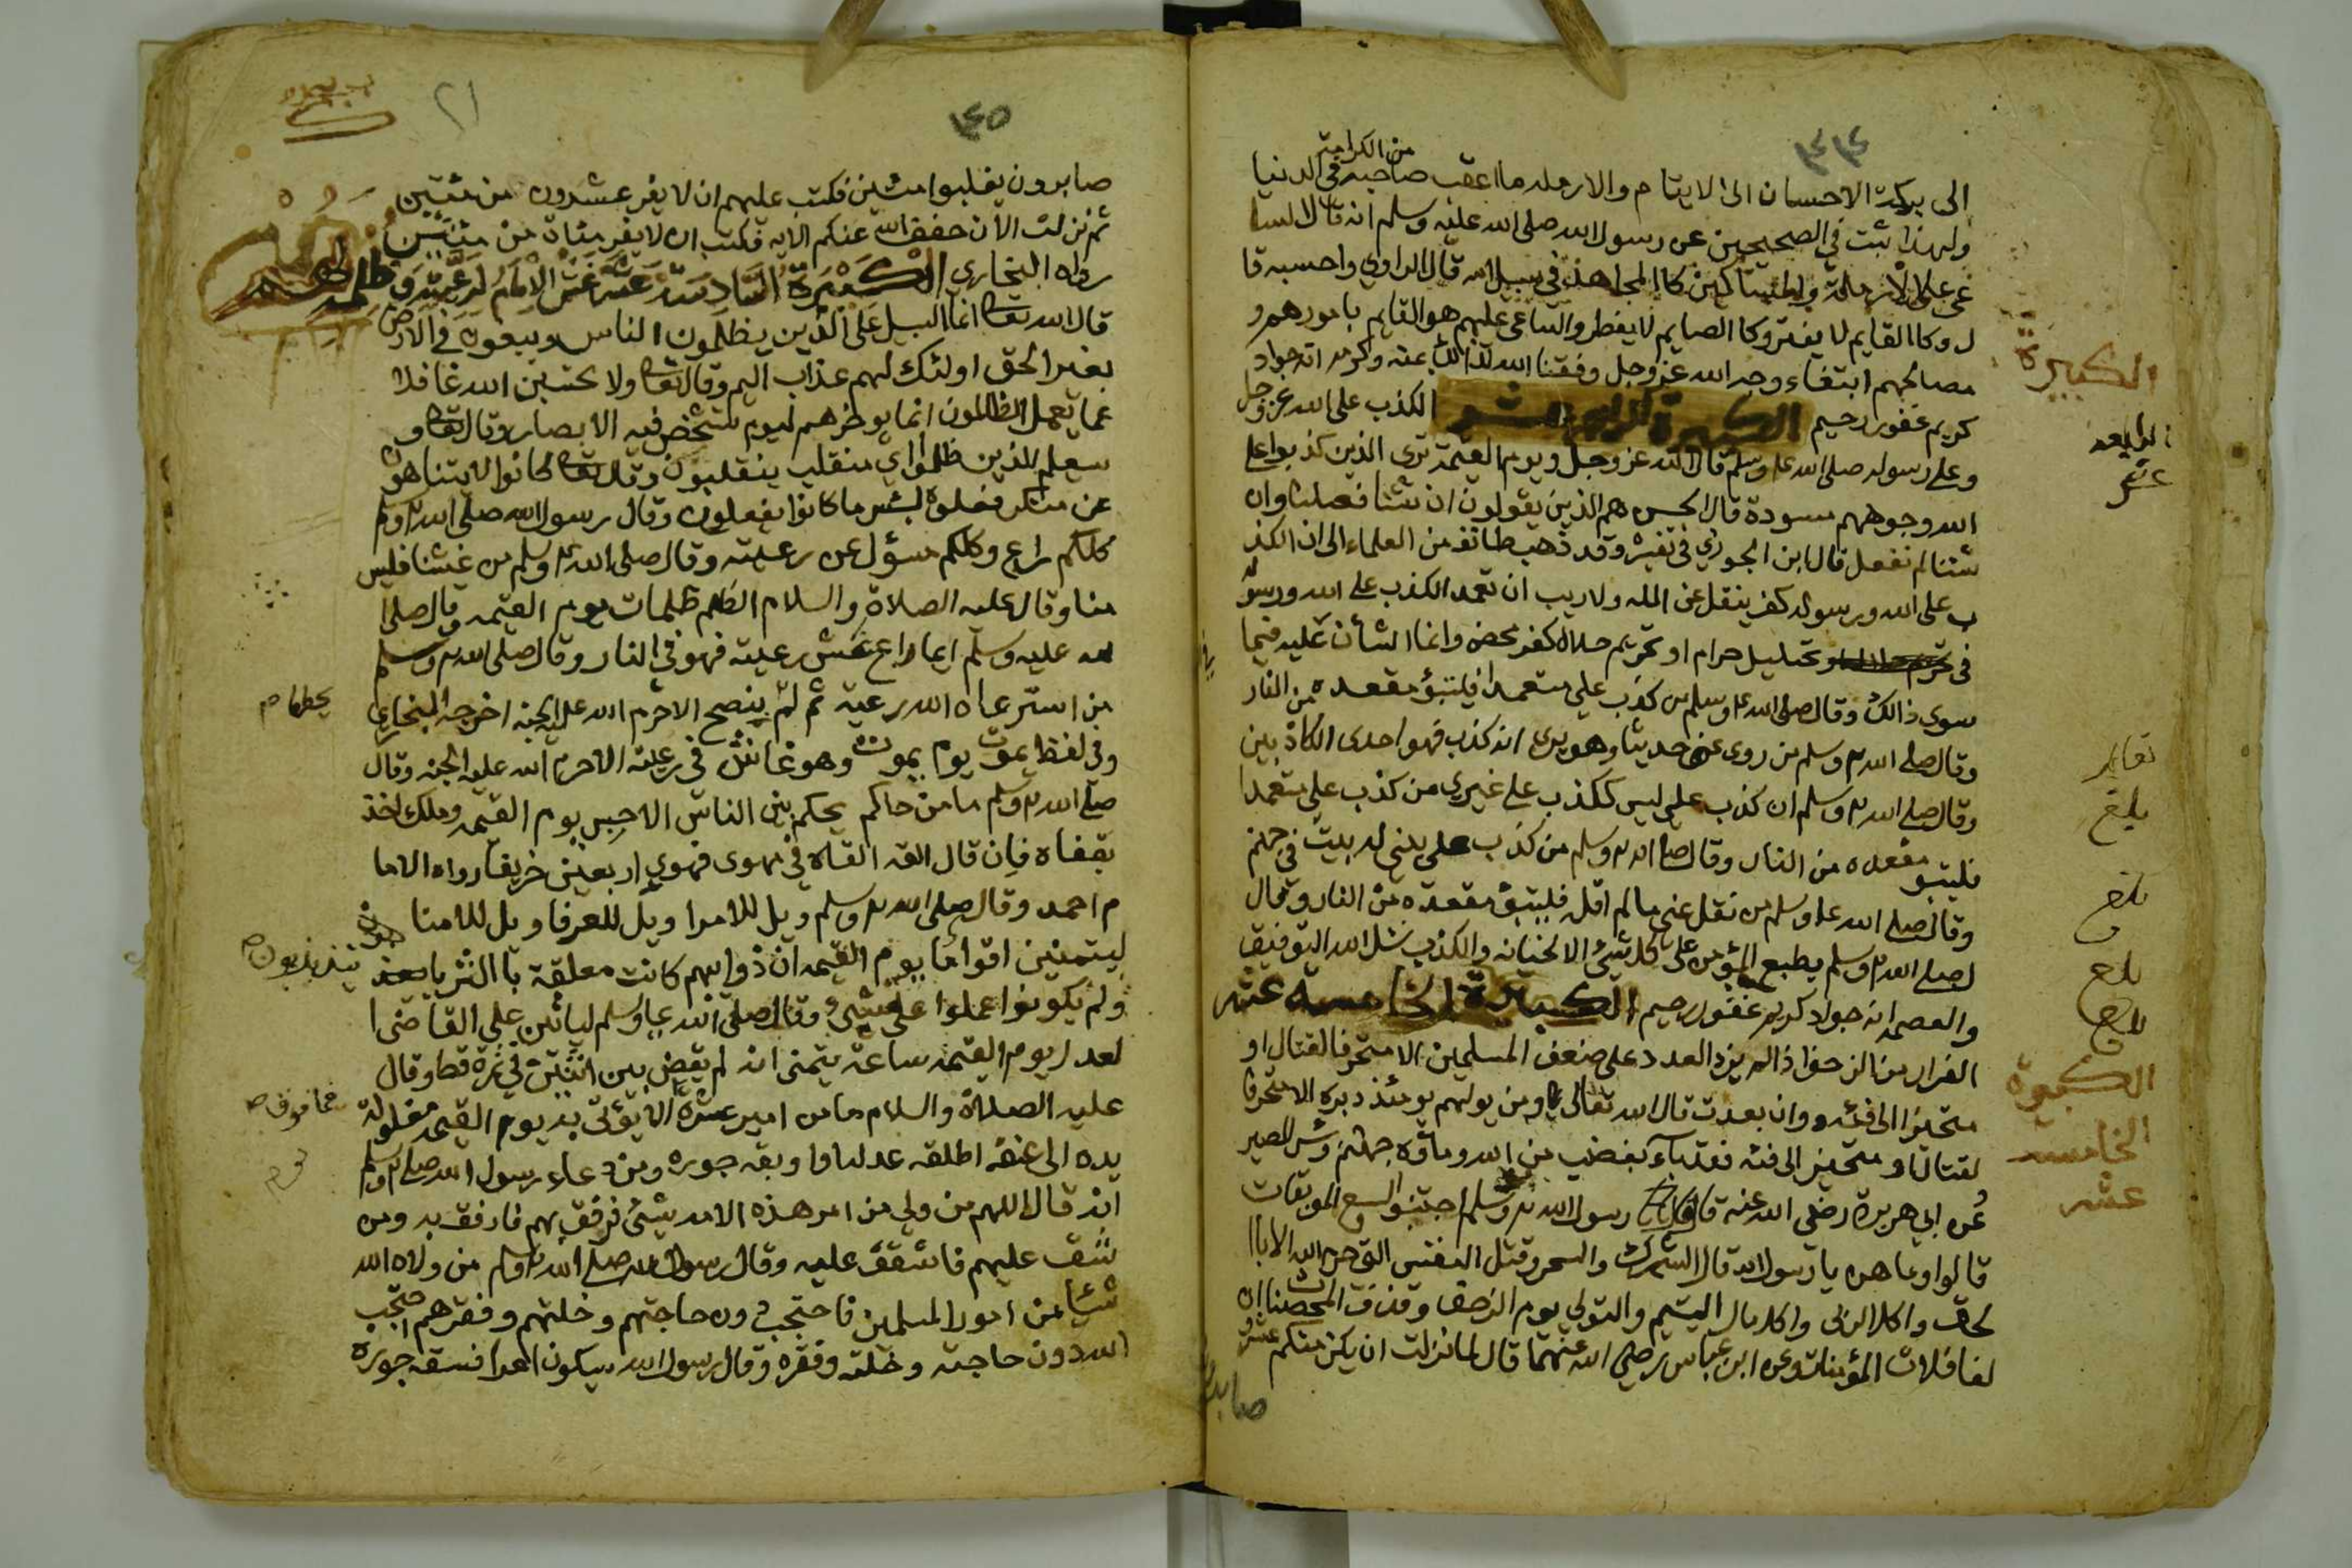 الى بركة الاحسان الى الايتام والارمله ما اعقب صاحبه من الكرامة في الدنيا
ولهذا ثبت في الصحيحين عن رسول الله صلى الله عليه وسلم انه قال السا
عي على الارملة والمساكين كاالمجاهد في سبيل الله قال الراوي واحسبه قا
ل وكاالقايم لا يفتر وكا الصايم لا يفطر والساعي عليهم هو القايم بامورهم و
مصالحهم ابتغاء وجه الله عز وجل وفقنا الله لذالك بمنه وكرمه انه جواد
كريم غفور رحيم الكبيرة الرابعة عشر الكذب على الله عز وجل
وعلى رسوله صلى الله عليه وسلم قال الله عز وجل ويوم القيمة ترى الذين كذبوا على
الله وجوههم مسودة قال الحسن هم الذين يقولون ان شئنا فعلنا وان
شئنا لم نفعل قال ابن الجوزي في تفسيره وقد ذهب طائفة من العلماء الى ان الكذ
ب على الله ورسوله كفر ينقل عن المله ولا ريب ان تعمد الكذب على الله ورسوله
في تحليل حرام او تحريم حلال كفر محض وانما الشأن عليه فيما
سوى ذالك وقال صلى الله عليه وسلم من كذب علي متعمدا فليتبؤ مقعده من النار
وقال صلى الله عليه وسلم من روى عني حديثا وهو يرى انه كذب فهو احدى الكاذبين
وقال صلى الله عليه وسلم ان كذب علي ليس ككذب على غيري من كذب علي متعمدا
فليتبو مقعده من النار وقال صلى الله عليه وسلم من كذب علي بني له بيت في جهنم
وقال صلى الله عليه وسلم من نقل عني ما لم اقل فليتبؤ مقعده من النار وقال
صلى الله عليه وسلم يطبع المؤمن على كل شيئ الا الخيانه والكذب نسئل الله التوفيق
والعصمه انه جواد كريم غفور رحيم الكبيرة الخامسه عشر
الفرار من الزحف اذا لم يزد العدد على ضعف المسلمين الا متحرفا لقتال او
متحيزا الى فئه وان بعدت قال الله تعالى ومن يولهم يومئذ دبره الا متحرفا
لقتال او متحيز الى فئه فقد باء بغضب من الله وماواه جهنم وبئس المصير
عن ابي هريرة رضي الله عنه قال قال رسول الله وسلم اجتنبوا السبع الموبقات
قالوا وما هن يا رسول الله قال الشرك والسحر وقتل النفس التي حرم الله الا باا
لحق واكل الربى واكل مال اليتيم والتولي يوم الزحف وقذف المحصنات ا
لغافلات المؤمنات وعن ابن عباس رضي الله عنهما قال لما نزلت ان يكن منكم عشرون
صابرون
الكبيرة
الرابعة
عشر
بلغ
بلغ
بلغ
الكبيرة
الخامسه
عشر
٢١
صابرون يغلبوا مئتين فكتب عليهم ان لا يفر عشرون من مئتين
ثم نزلت الأن خفف الله عنكم الايه فكتب ان لا يفر مئاة من مئتين
رواه البخاري الكبيرة السادسة عشر غش الامام لرعيته وظلمه
قال الله تعالى انما السبيل على الذين يظلمون الناس ويبغون في الارض
بغير الحق اولئك لهم عذاب اليم وقال تعالى ولا تحسبن الله غافلا
عما يعمل الظالمون انما يوخرهم ليوم تشخص فيه الابصار وقال تعالى و
سيعلم الذين ظلموا اي منقلب ينقلبون وقال تعالى كانوا لا يتناهون
عن منكر فعلوه لبئس ما كانوا يفعلون وقال رسول الله صلى الله عليه وسلم
كلكم راع وكلكم مسؤل عن رعيته وقال صلى الله عليه وسلم من غشنا فليس
منا وقال عليه الصلاة والسلام الظلم ظلمات يوم القيمه وقال صلى ا
لله عليه وسلم ايما راع غش رعيته فهو في النار وقال صلى الله عليه وسلم
من استرعاه الله رعية ثم لم ينصح الا حرم الله عليه الجنه اخرجه البخاري
وفي لفظ يموت يوم يموت وهو غاش في رعيته الا حرم الله عليه الجنه وقال
صلى الله عليه وسلم ما من حاكم يحكم بين الناس الا حبس يوم القيمه وملك اخذ
بقفاه فان قال القه القاه في مهوى فهوى اربعين خريفا رواه الاما
م احمد وقال صلى الله عليه وسلم ويل للامرا ويل للعرفا ويل للامنا
ليتمنين اقواما يوم القيمه ان ذوايبهم كانت معلقة با الثريا يتذبذبون
ولم يكونوا عملوا على شيئ وقال صلى الله عليه وسلم لياتين على القاضي ا
لعدل يوم القيمه ساعة يتمنى انه لم يقض بين اثنين في تمرة قط وقال
عليه الصلاة والسلام ما من امير عشرة الا يؤتى به يوم القيمه مغلولة
يده الى عنقه اطلقه عدله او اوبقه جوره ومن دعاء رسول الله صلى الله عليه وسلم
انه قال اللهم من ولي من امر هذه الامه شيئ فرفق بهم فارفق به ومن
شقق عليهم فاشقق عليه وقال رسول الله صلى الله عليه وسلم من ولاه الله
شيئا من امور المسلمين فاحتجب دون حاجتهم وخلتهم وفقرهم احتجب
الله دون حاجته وخلته وفقره وقال رسول الله سيكون امرا فسقه جوره